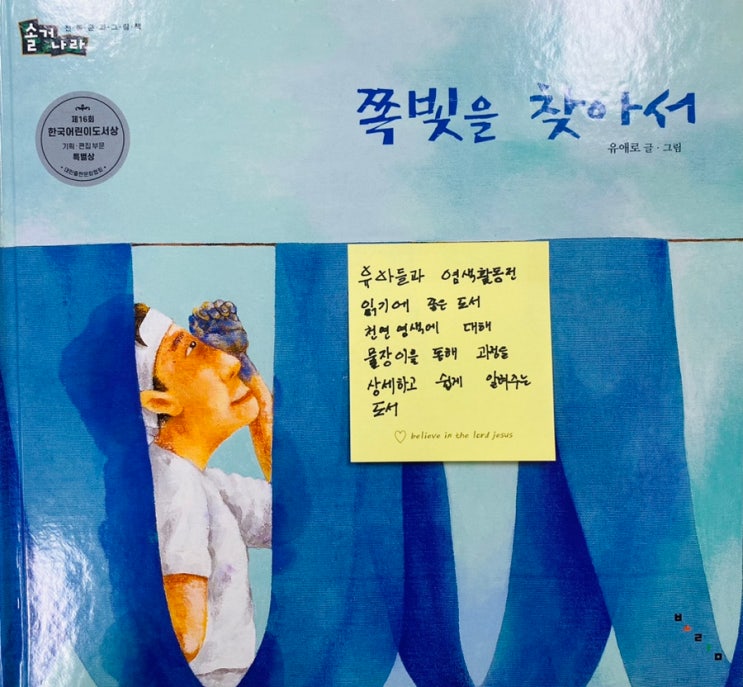 솔거나라
전통문화그림책
제16회
한국어린이도서상
기획·편집 부문
특별상
·대한출판문화협회·
쪽빛을 찾아서
유애로 글·그림
유아들과 염색활동전
읽기에 좋은 도서
천연염색에 대해
물장이을 통해 과정을
상세하고 쉽게 알려주는
도서
♡ believe in the lord jesus
보림